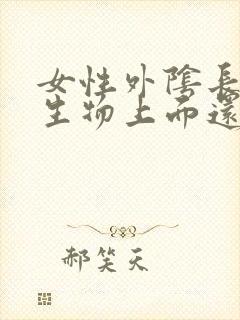 女性外陰長
生物上而還
郝笑天